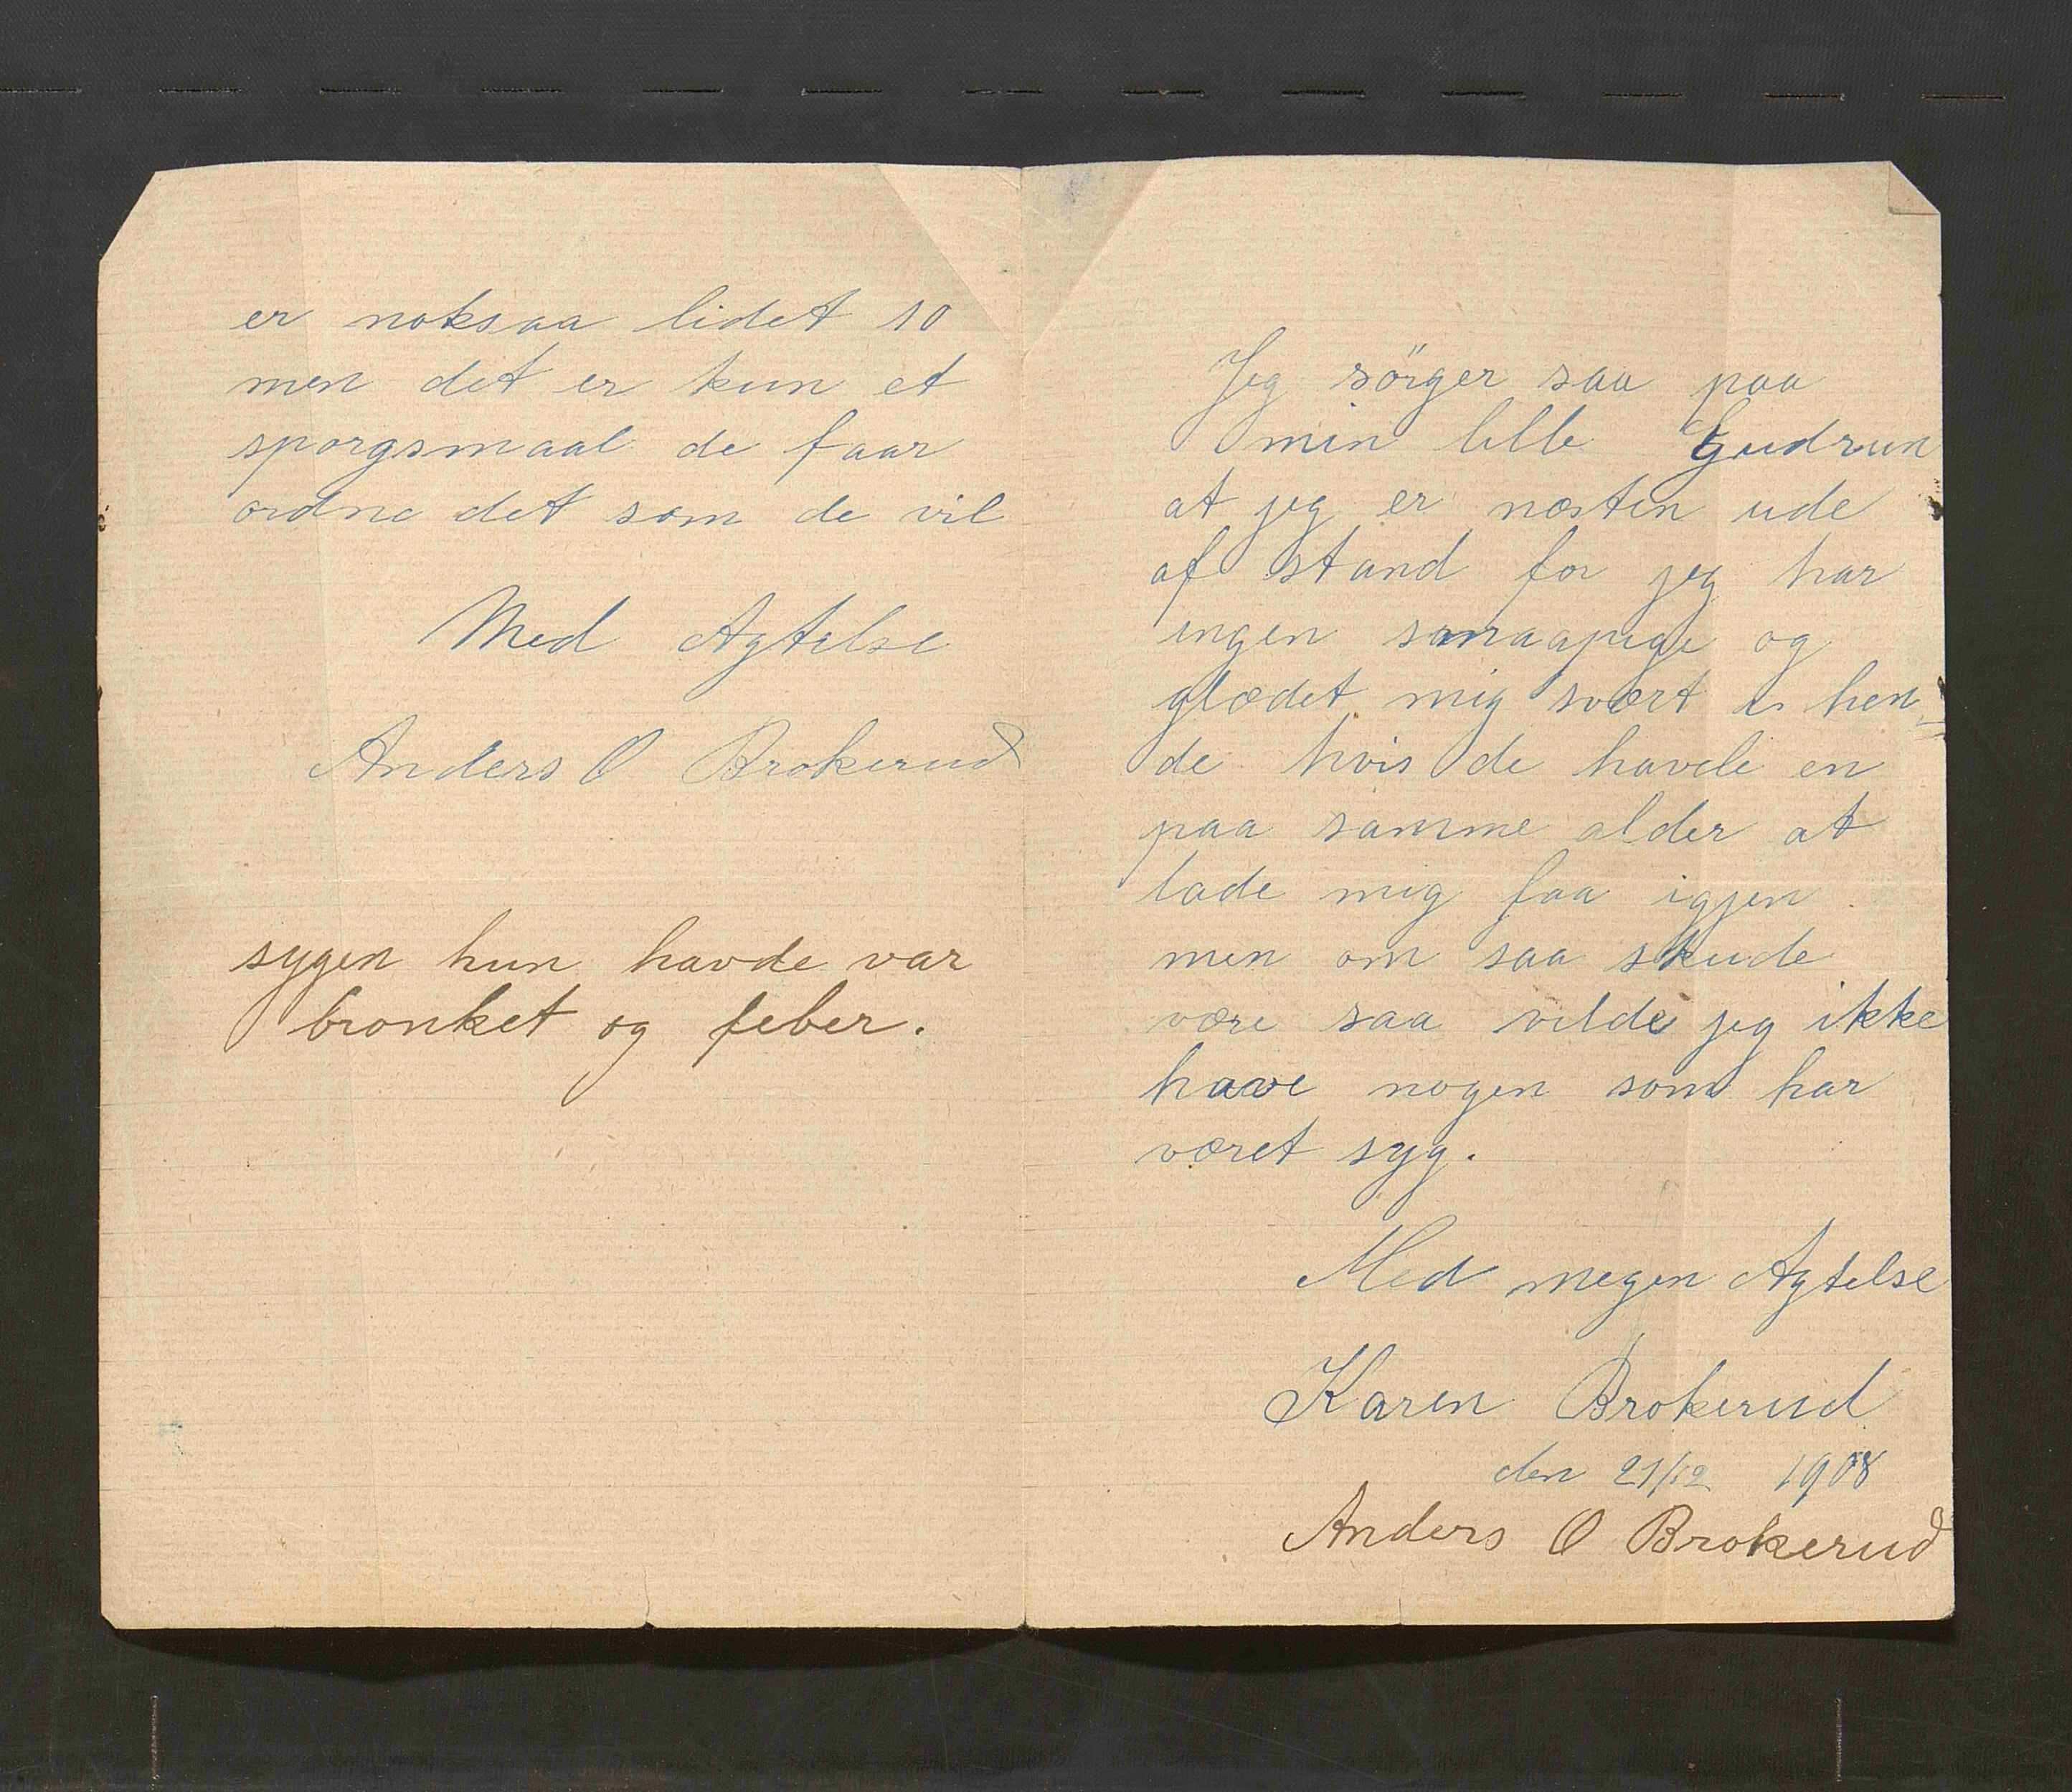 er noksaa lidet 10
men det er kun et
sporgsmaal de faar
ordne det som de vil
Med Agtelse
Anders O Brokerud
sygen hun havde var
bronket og feber.
Jeg sörger saa paa
min lille Gudrun
at jeg er næsten ude
af stand for jeg har
ingen smaapige og
glædet mig svært i hen„
de hvis de havde en
paa samme alder at
lade mig faa igjen.
men om saa skude
være saa vilde jeg ikke
have nogen som har
været syg.
Med megen Agtelse
Karen Brokerud
den 21/12 1908
Anders O Brokerud